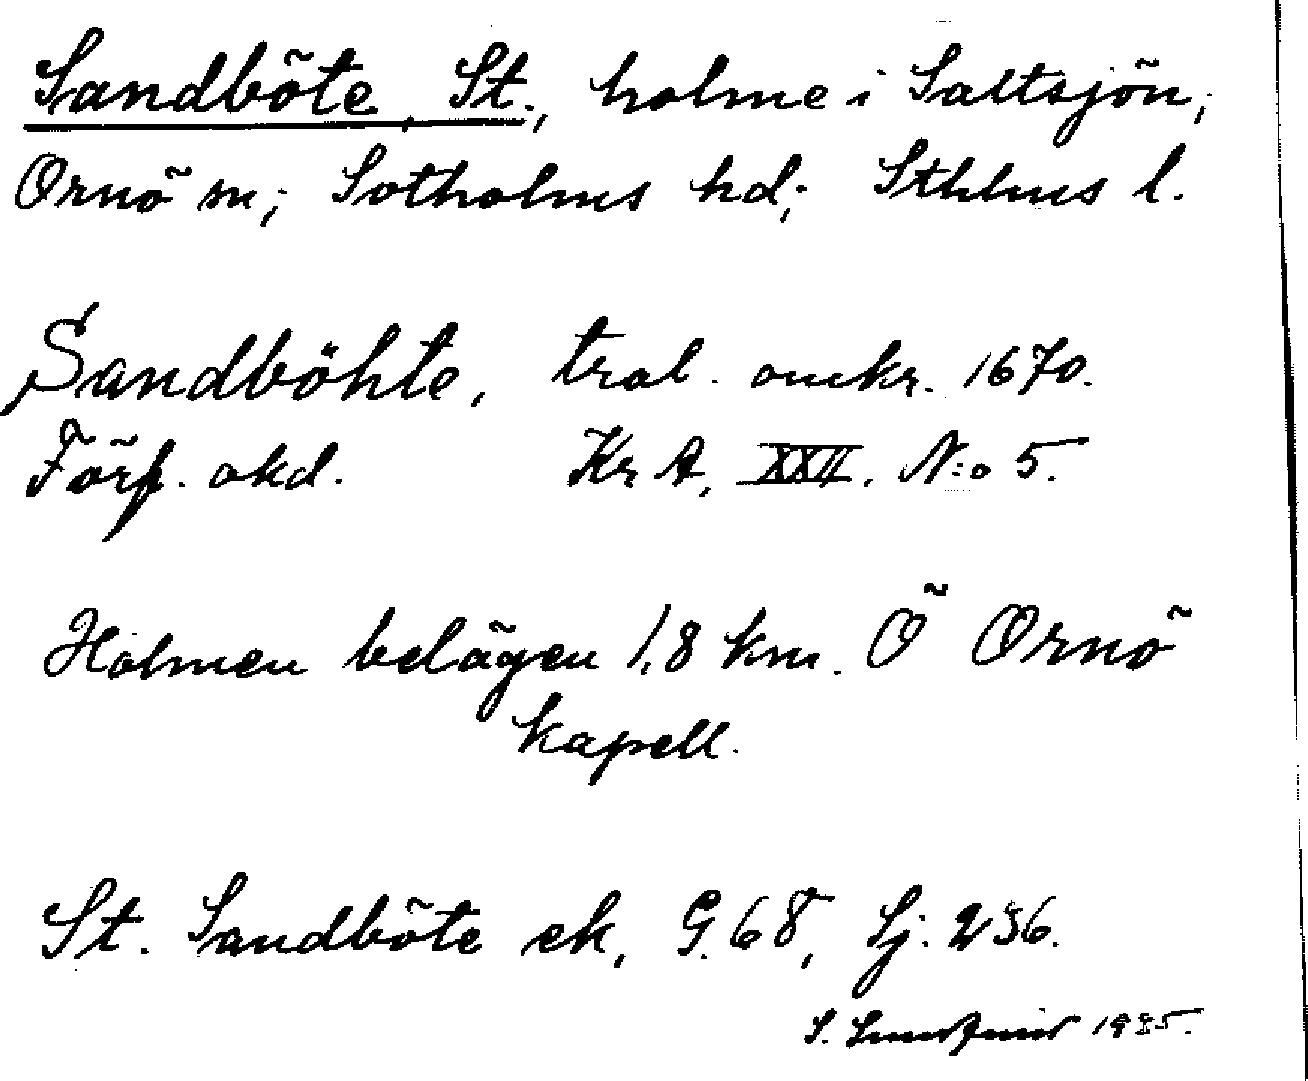 Sandböte, St., holme i Saltsjön,
Ornö sn; Sotholms hd; Sthlms l.
Sandböhte, tral. omkr. 1670.
Förf. okd. Kr A, XXII. N:o 5.
Holmen belägen 1,8 km. Ö Ornö
kapell.
St. Sandböte ek, G. 68, Sj. 236.
S. 1935.